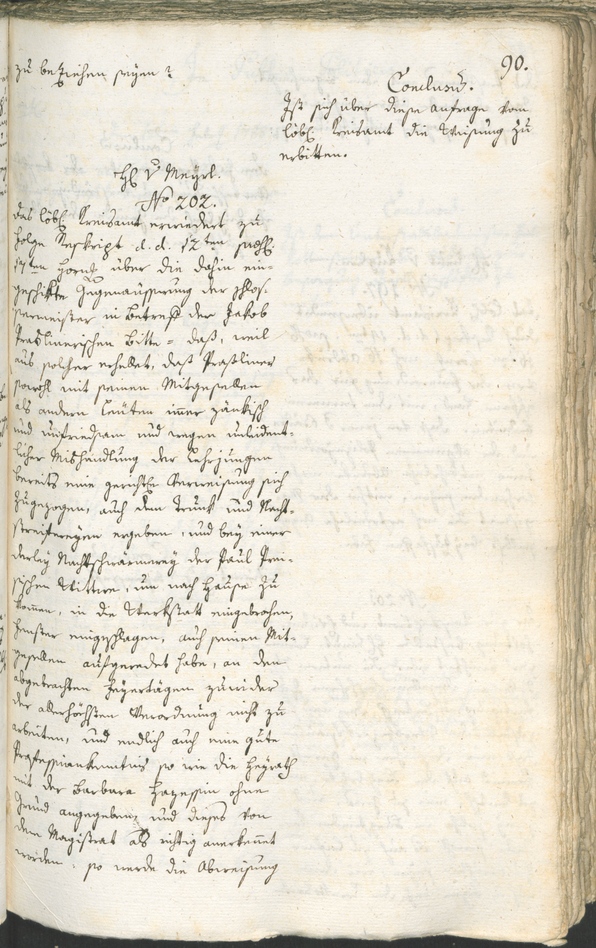 90.
zu beziehen seyen?
Conclusũ.
Ist sich über diese Anfrage vom
löbl. Kreisamt die Weisung zu
erbitten.
H. v Meyrl.
No 202.
das löbl. Kreisamt erwiedert zu
folge Reskript d. d. 12ten
17ten Hornũg über die dahin ein-
geschikte Gegenäusserung der Schlos-
sermeister in Betreff der Jakob
Prastlinerischen Bitte = daß, weil
aus solcher erhellet, daß Prastliner
sowohl mit seinen Mitgesellen
als andern Leuten im̄er zänkisch
und unfriedsam und wegen unleident-
licher Mishandlung der Lehrjungen
bereits eine gerichtle Verweisung sich
zugezogen, auch dem Trunk und Nacht-
streifereyen ergeben, und bey einer
derley Nachtschwärmerey der Paul Prei-
sischen Wittwe, um nach Hause zu
kom̄en, in die Werkstatt eingebrochen,
Fenster eingeschlagen, auch seinen Mit-
gesellen aufgeredet habe, an den
abgebrachten Feyertägen zuwider
der allerhöchsten Verordnung nicht zu
arbeiten, und endlich auch eine gute
Professionkenntnis so wie die Heyrath
mit der Barbara Hazessin ohne
Grund angegeben, und dieses von
dem Magistrat als richtig anerkennet
worden. so werde die Abweisung